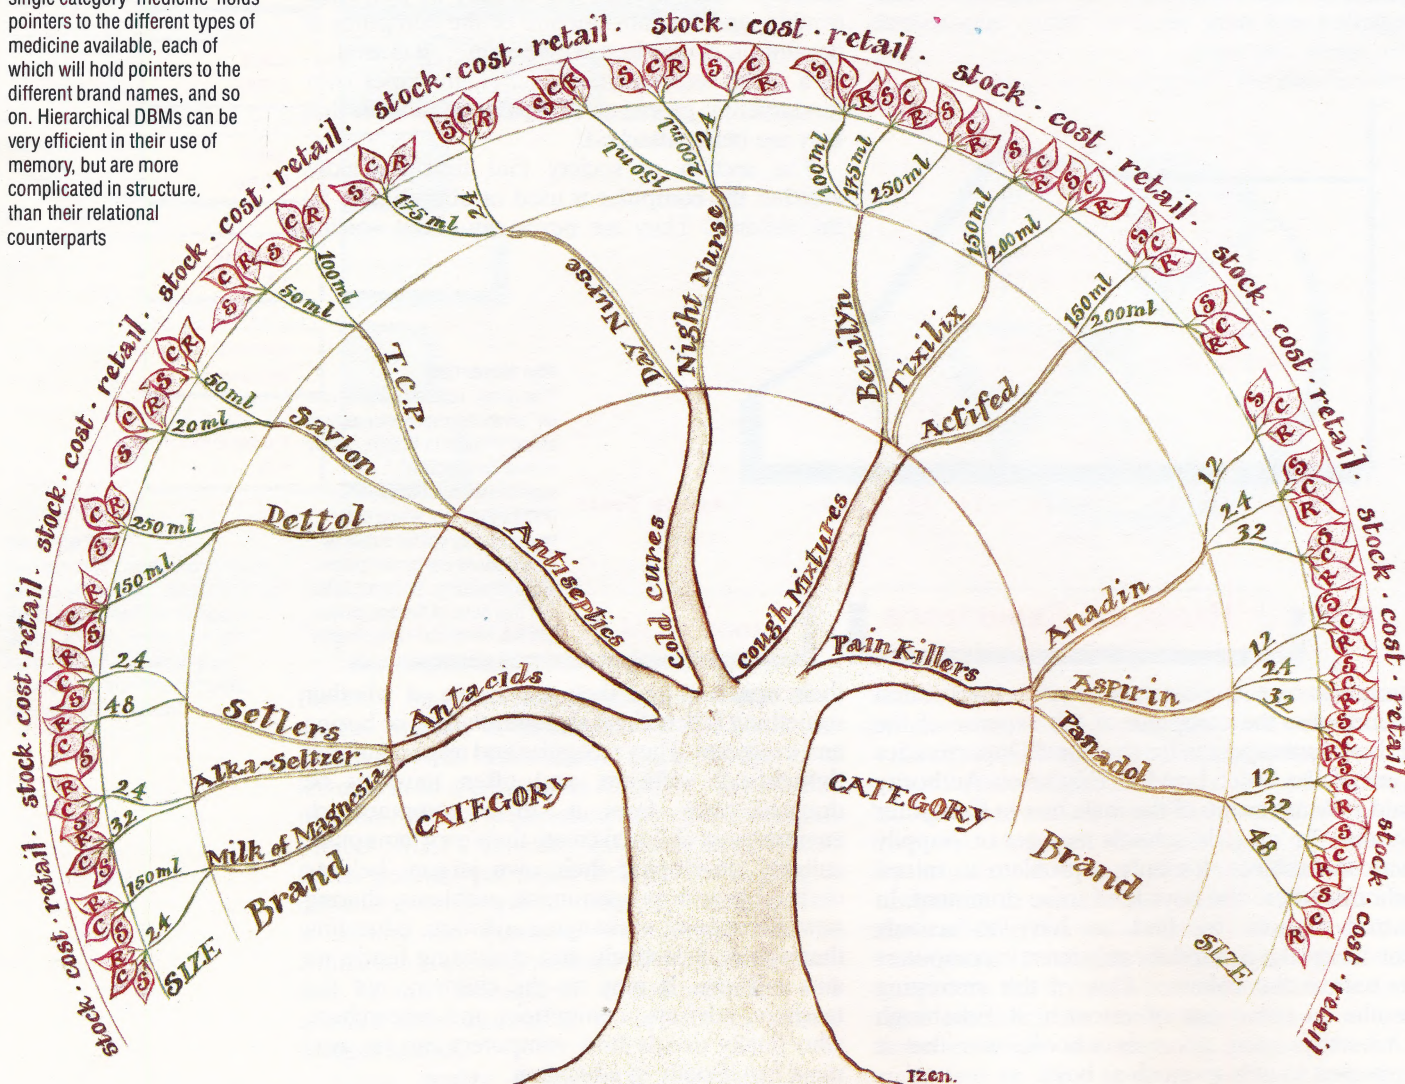 pointers to the different types of
medicine available, each of
which will hold pointers to the
different brand names, and so
on. Hierarchical DBMs can be
very efficient in their use of
memory, but are more
complicated in structure.
than their relational
counterparts
stock · cost · retail · stock · cost · retail · stock · cost · retail · stock · cost · retail · stock · cost · retail · stock · cost · retail · stock · cost · retail · stock · cost · retail · stock · cost · retail · stock · cost · retail · stock · cost · retail · stock · cost · retail
Antacids
Setlers
24
48
Alka-Seltzer
24
32
Milk of Magnesia
150ml
24
Antiseptics
T.C.P.
100ml
50ml
Savlon
50ml
20ml
Dettol
250ml
150ml
Cold Cures
Day Nurse
175ml
24
Night Nurse
150ml
200ml
24
Cough Mixtures
Benilyn
100ml
175ml
250ml
Tixilix
150ml
200ml
Actifed
150ml
200ml
Pain Killers
Anadin
12
24
32
Aspirin
12
24
32
Panadol
12
32
48
CATEGORY
Brand
SIZE
CATEGORY
Brand
SIZE
S C R
Tzen.